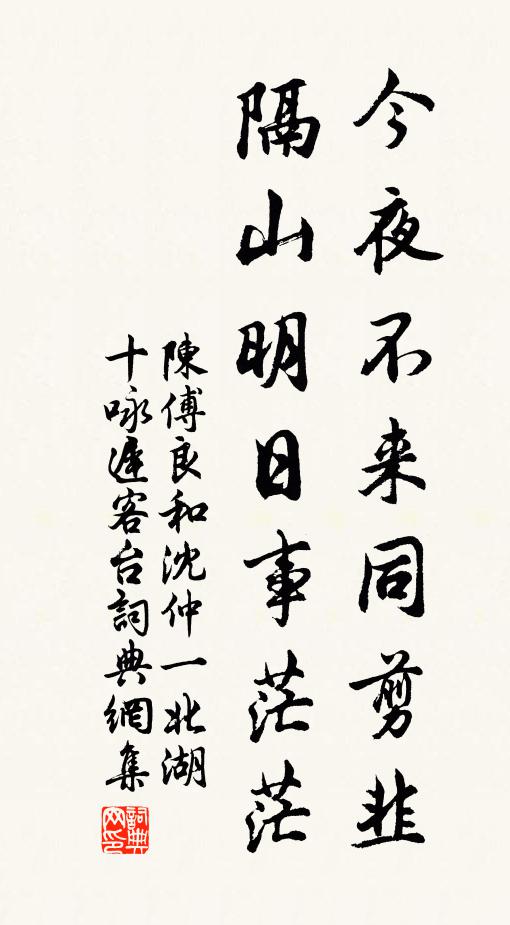 今夜不来同剪韭
隔山明日事茫茫
陳傅良和沈仲一北湖
十咏遲客台詞典網集
詞典網印